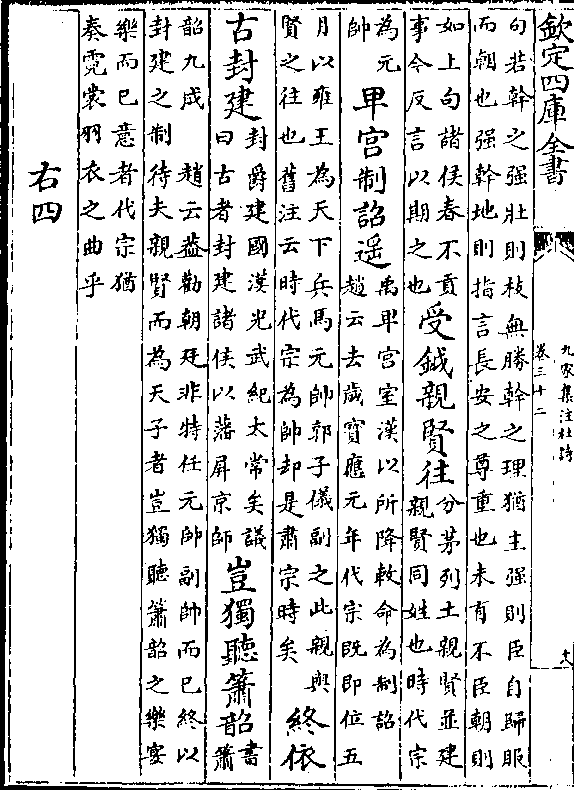 欽定四庫全書
九家集注杜詩
卷三十二
十八
句若幹之强壯則枝無勝幹之理猶主强則臣自歸服
而朝也强幹地則指言長安之尊重也未有不臣朝則
如上句諸侯春不貢
事今反言以期之也
受鉞親賢往
分茅列土親賢並建
親賢同姓也時代宗
為元
帥
卑宮制詔遥
禹卑宮室漢以所降敕命為制詔
趙云去歲寶應元年代宗既即位五
月以雍王為天下兵馬元帥郭子儀副之此親與
賢之往也舊注云時代宗為帥却是肅宗時矣
終依
古封建
封爵建國漢光武紀太常矣議
曰古者封建諸侯以藩屏京師
豈獨聽簫韶
書
簫
韶九成　趙云葢勸朝廷非特任元帥副帥而已終以
封建之制待夫親賢而為天子者豈獨聽簫韶之樂宴
樂而已意者代宗猶
奏霓裳羽衣之曲乎
右四